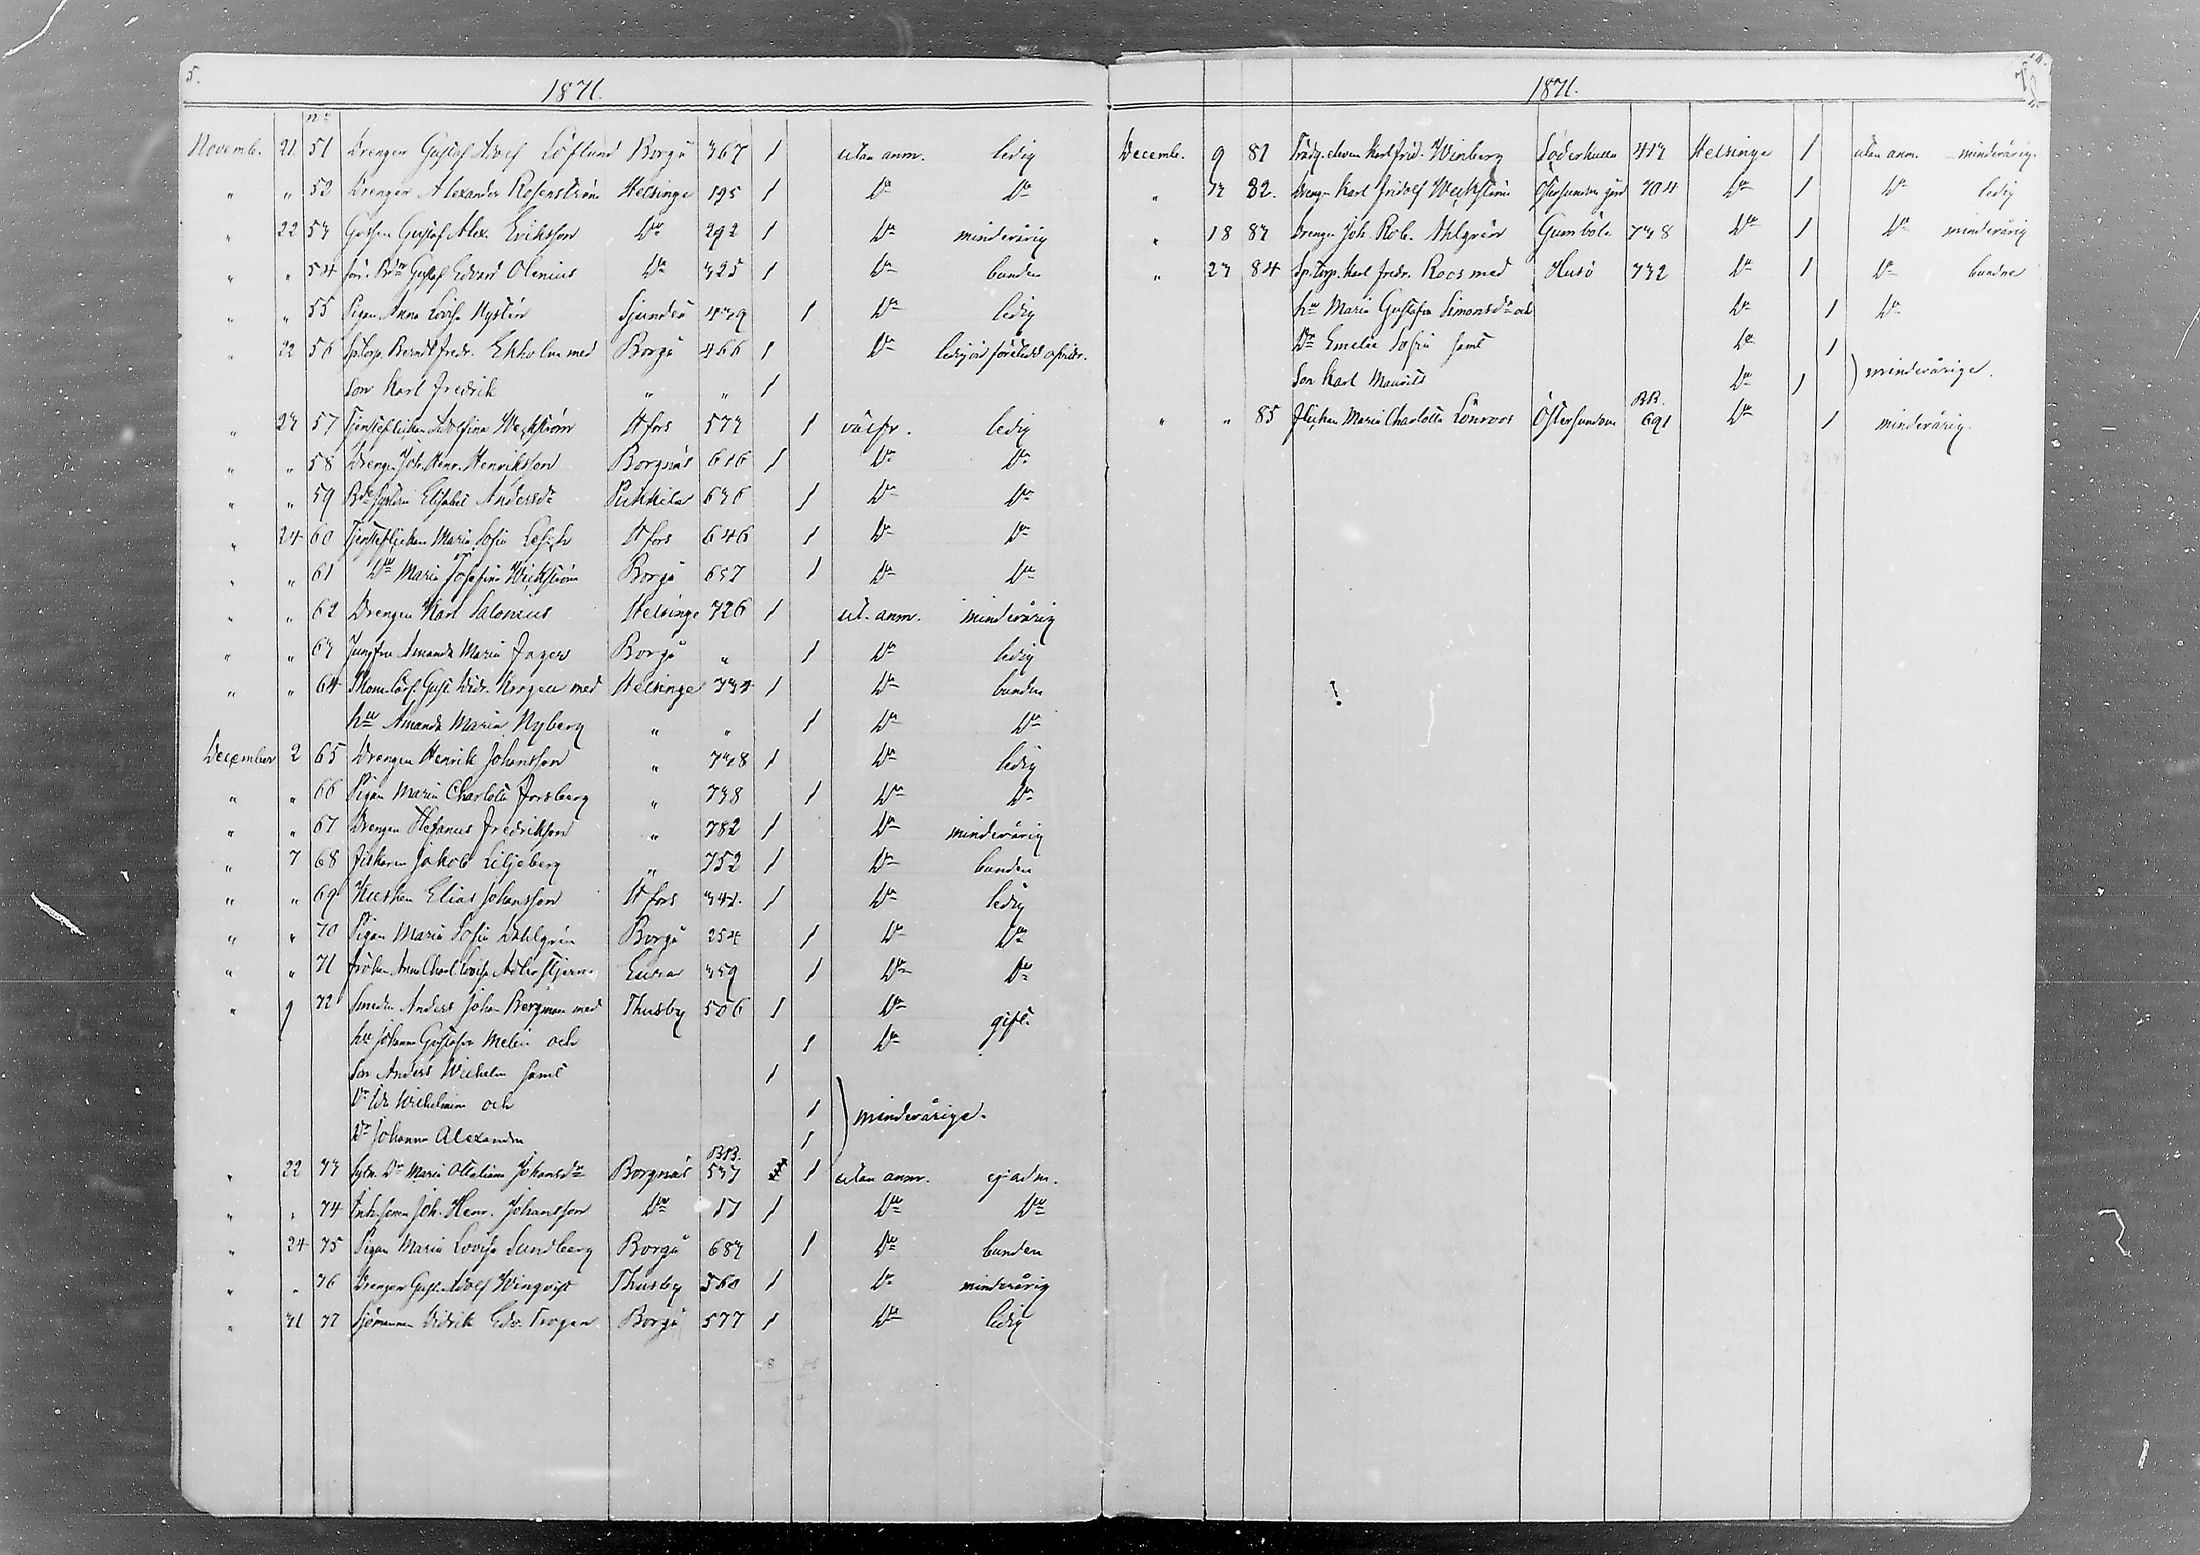 5.
1871.
No
Novemb. 21 51 Drengen Gustaf Adolf Löflund Borgå 367 1 utan anm. ledig
" " 52 Drengen Alexander Rosenström Helsinge 195 1 Do Do
" 22 53 Gossen Gustaf Alex. Eriksson Do 292 1 Do minderårig
" " 54 Gustaf Edvard Olenius Do 325 1 Do bunden
" " 55 Pigan Anna Lovisa Nystén Sjundeå 439 1 Do ledig
" 22 56 Sp.torp. Berndt Fredr. Ekholm med Borgå 466 1 Do
Son Karl Fredrik " " 1
" 23 57 Tjensteflickan Adolfina Weckström Hfors 573 1 välfr. ledig
" " 58 Drengen Joh. Henr. Henriksson Borgnäs 616 1 Do Do
" " 59 Elisabet Andersdr Pukkila 636 1 Do Do
" 24 60 Tjensteflickan Maria Sofia Hfors 646 1 Do Do
" " 61 Do Maria Josefina Weckström Borgå 657 1 Do Do
" " 62 Drengen Karl Salonius Helsinge 726 1 ut. anm. minderårig
" " 63 Jungfru Amanda Maria Jager Borgå " 1 Do ledig
" " 64 Gust. Didr. Krogell med Helsinge 734 1 Do bunden
hu Amanda Maria Nyberg " " 1 Do Do
December 2 65 Drengen Henrik Johansson " 738 1 Do ledig
" " 66 Pigan Maria Charlotta Forsberg " 738 1 Do Do
" " 67 Drengen Stefanus Fredriksson " 782 1 Do minderårig
" 7 68 Fiskaren Jakob Liljeberg " 752 1 Do bunden
" " 69 Elias Johansson Hfors 342. 1 Do ledig
" " 70 Pigan Maria Sofia Dahlgrén Borgå 254 1 Do Do
" " 71 Fröken Anna Charl. Lovisa Adlerstjerna Eura 359 1 Do Do
" 9 72 Smeden Anders Johan Bergman med Thusby 506 1 Do gift.
hu Johanna Gustafva Melin och 1 Do
Son Anders Wilhelm samt 1
Do Ida Wilhelmina och 1 minderårige.
Do Johanna Alexandra 1
BB.
" 22 73 Maria Ottiliana Johansdr Borgnäs 537 1 utan anm. ej adm.
" " 74 Inh. sonen Joh. Henr. Johansson Do 17 1 Do Do
" 24 75 Pigan Maria Lovisa Sundberg Borgå 683 1 Do bunden
" " 76 Drengen Gust. Adolf Winqvist Thusby 360 1 Do minderårig
" 31 77 Sjömannen Didrik Edv. Trogen Borgå 577 1 Do ledig
1871.
Decemb. 9 81 Trädg. eleven Karl Frid. Winberg Söderkulla 413 Helsinge 1 utan anm. minderårig.
" 13 82. Dreng. Karl Fridolf Weckström Östersundom gård 704 Do 1 Do ledig
" 18 83 Drengen Joh. Rob. Ahlgrén Gumböle 738 Do 1 Do minderårig
" 23 84 Sp.torp. Karl Fredr. Roos med Husö 732 Do 1 Do bundne
hu Maria Gustafva Simonsdr och Do 1 Do
Dr Emelie Sofia samt Do 1
Son Karl Maurits Do 1 minderårige.
BB.
" " 85 Flickan Maria Charlotta Lönroos Östersundom 691 Do 1 minderårig.